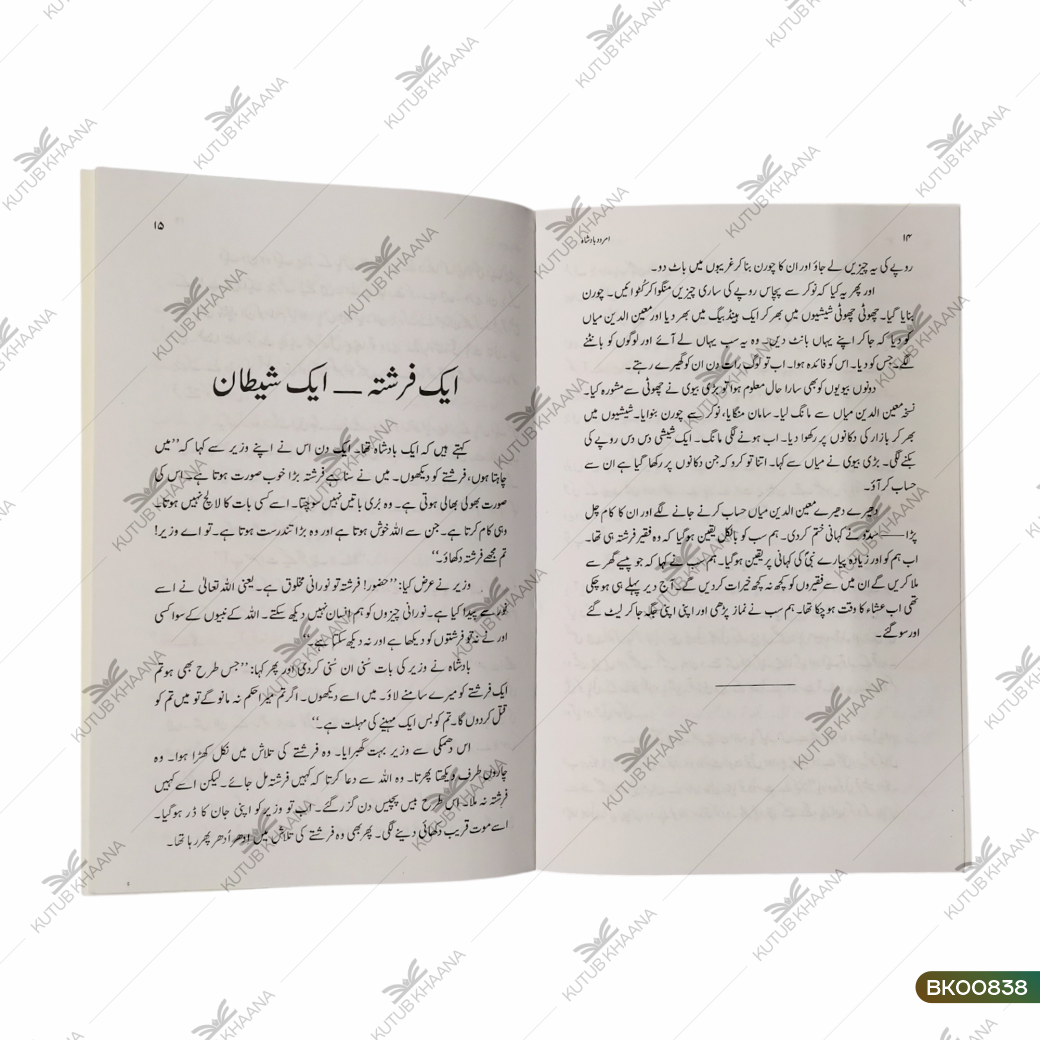 ۱۴
امرود بادشاہ
روپے کی یہ چیزیں لے جاؤ اور ان کا چورن بنا کر غریبوں میں بانٹ دو۔
اور پھر یہ کیا کہ نوکر سے پچاس روپے کی ساری چیزیں منگوا کر کُٹوائیں۔ چورن
بنایا گیا۔ چھوٹی چھوٹی شیشیوں میں بھر کر ایک ہینڈ بیگ میں بھر دیا اور معین الدین میاں
کو دیا کہ جا کر اپنے یہاں بانٹ دیں۔ وہ یہ سب یہاں لے آئے اور لوگوں کو بانٹنے
لگے۔ جس کو دیا۔ اس کو فائدہ ہوا۔ اب تو لوگ رات دن ان کو گھیرے رہتے۔
دونوں بیویوں کو بھی سارا حال معلوم ہوا تو بڑی بیوی نے چھوٹی سے مشورہ کیا۔
نسخہ معین الدین میاں سے مانگ لیا۔ سامان منگایا، نوکر سے چورن بنوایا۔ شیشیوں میں
بھر کر بازار کی دکانوں پر رکھوا دیا۔ اب ہونے لگی مانگ۔ ایک شیشی دس دس روپے کی
بکنے لگی۔ بڑی بیوی نے میاں سے کہا۔ اتنا تو کرو کہ جن دکانوں پر رکھا گیا ہے ان سے
حساب کر آؤ۔
دھیرے دھیرے معین الدین میاں حساب کرنے جانے لگے اور ان کا کام چل
پڑا—— سدّو نے کہانی ختم کردی۔ ہم سب کو بالکل یقین ہو گیا کہ وہ فقیر فرشتہ ہی تھا۔
اب ہم کو اور زیادہ پیارے نبیؐ کی کہانی پر یقین ہو گیا۔ ہم سب نے کہا کہ جو پیسے گھر سے
ملا کریں گے ان میں سے فقیروں کو کچھ نہ کچھ خیرات کر دیں گے۔ آج دیر پہلے ہی ہو چکی
تھی اب عشاء کا وقت ہو چکا تھا۔ ہم سب نے نماز پڑھی اور اپنی اپنی جگہ جا کر لیٹ گئے
اور سو گئے۔
۱۵
ایک فرشتہ — ایک شیطان
کہتے ہیں کہ ایک بادشاہ تھا۔ ایک دن اس نے اپنے وزیر سے کہا کہ ”میں
چاہتا ہوں، فرشتے کو دیکھوں۔ میں نے سنا ہے فرشتہ بڑا خوب صورت ہوتا ہے۔ اس کی
صورت بھولی بھالی ہوتی ہے۔ وہ بُری باتیں نہیں سوچتا۔ اسے کسی بات کا لالچ نہیں ہوتا۔
وہی کام کرتا ہے۔ جن سے اللہ خوش ہوتا ہے اور وہ بڑا تندرست ہوتا ہے۔ تو اے وزیر!
تم مجھے فرشتہ دکھاؤ۔“
وزیر نے عرض کیا: ”حضور! فرشتہ تو نورانی مخلوق ہے۔ یعنی اللہ تعالیٰ نے اسے
نور سے پیدا کیا ہے۔ نورانی چیزوں کو ہم انسان نہیں دیکھ سکتے۔ اللہ کے نبیوں کے سوا کسی
اور نے نہ تو فرشتوں کو دیکھا ہے اور نہ دیکھ سکتا ہے۔“
بادشاہ نے وزیر کی بات سُنی ان سُنی کردی اور پھر کہا: ”جس طرح بھی ہو تم
ایک فرشتے کو میرے سامنے لاؤ۔ میں اسے دیکھوں۔ اگر تم میرا حکم نہ مانو گے تو میں تم کو
قتل کردوں گا۔ تم کو بس ایک مہینے کی مہلت ہے۔“
اس دھمکی سے وزیر بہت گھبرایا۔ وہ فرشتے کی تلاش میں نکل کھڑا ہوا۔ وہ
چاروں طرف دیکھتا پھرتا۔ وہ اللہ سے دعا کرتا کہ کہیں فرشتہ مل جائے۔ لیکن اسے کہیں
فرشتہ نہ ملا۔ اس طرح بیس پچیس دن گزر گئے۔ اب تو وزیر کو اپنی جان کا ڈر ہو گیا۔
اسے موت قریب دکھائی دینے لگی۔ پھر بھی وہ فرشتے کی تلاش میں اِدھر اُدھر پھر رہا تھا۔
KUTUB KHAANA
BK00838